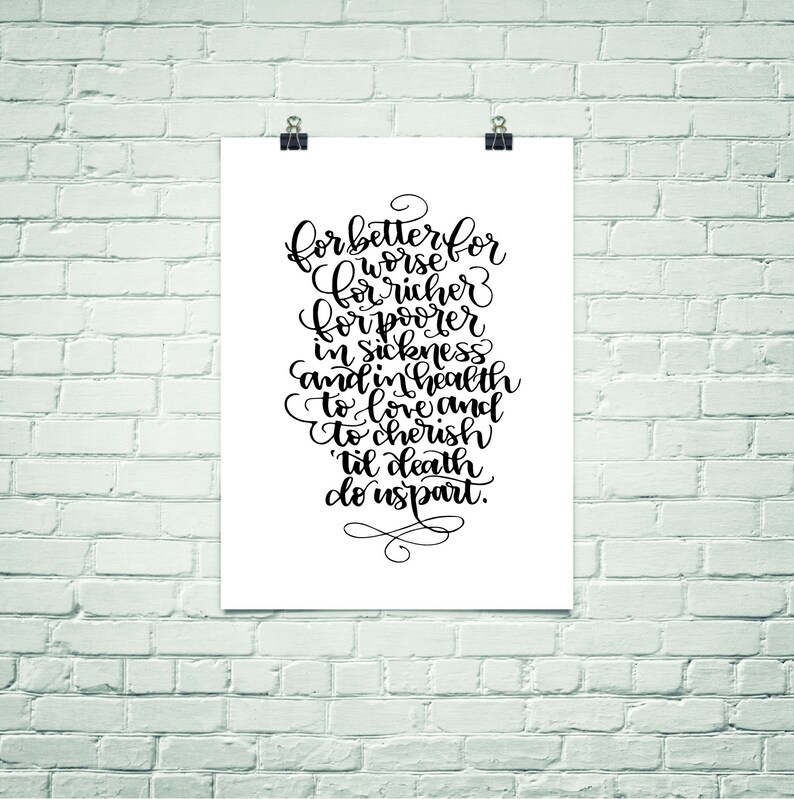 for better for
worse
for richer
for poorer
in sickness
and in health
to love and
to cherish
'til death
do us part.